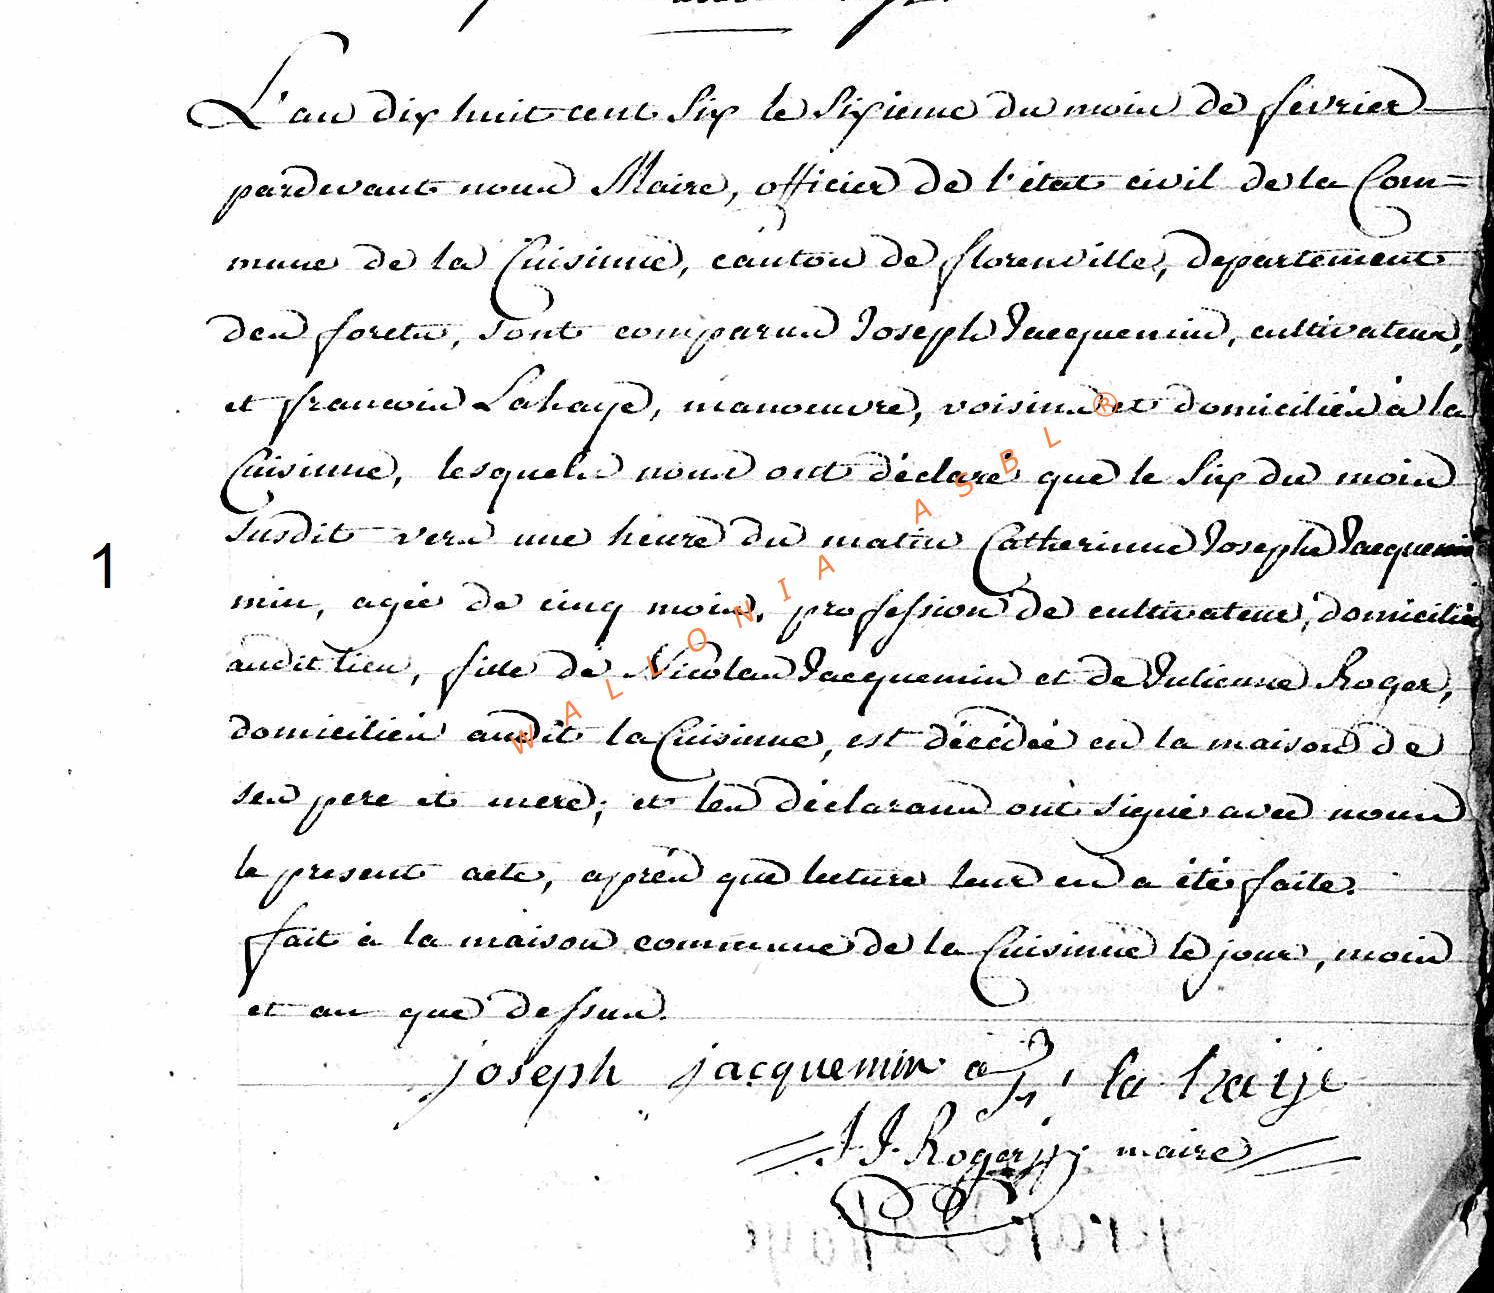 L'an dix huit cent six le sixieme du mois de fevrier
pardevant nous Maire, officier de l'état civil de la Com=
mune de la Cuisinne, canton de florenville, departement
des forets, sont comparus Joseph Jacquemin, cultivateur,
et francois Lahaye, manoeuvre, voisins et domiciliés à la
Cuisinne, lesquels nous ont déclaré que le six du mois
susdit vers une heure du matin Catherinne Josephe Jacque
min, agée de cinq mois, profession de cultivateur, domiciliée
audit lieu, fille de Nicolas Jacquemin et de Julienne Roger,
domiciliés audit la Cuisinne, est décédée en la maison de
ses pere et mere; et les déclarans ont signé avec nous
le present acte, aprés que lecture leur en a été faite.
fait à la maison commune de la Cuisinne le jour, mois
et an que dessus.
joseph jacquemin la haije
J. J. Roger maire
1
WALLONIA ASBL ®